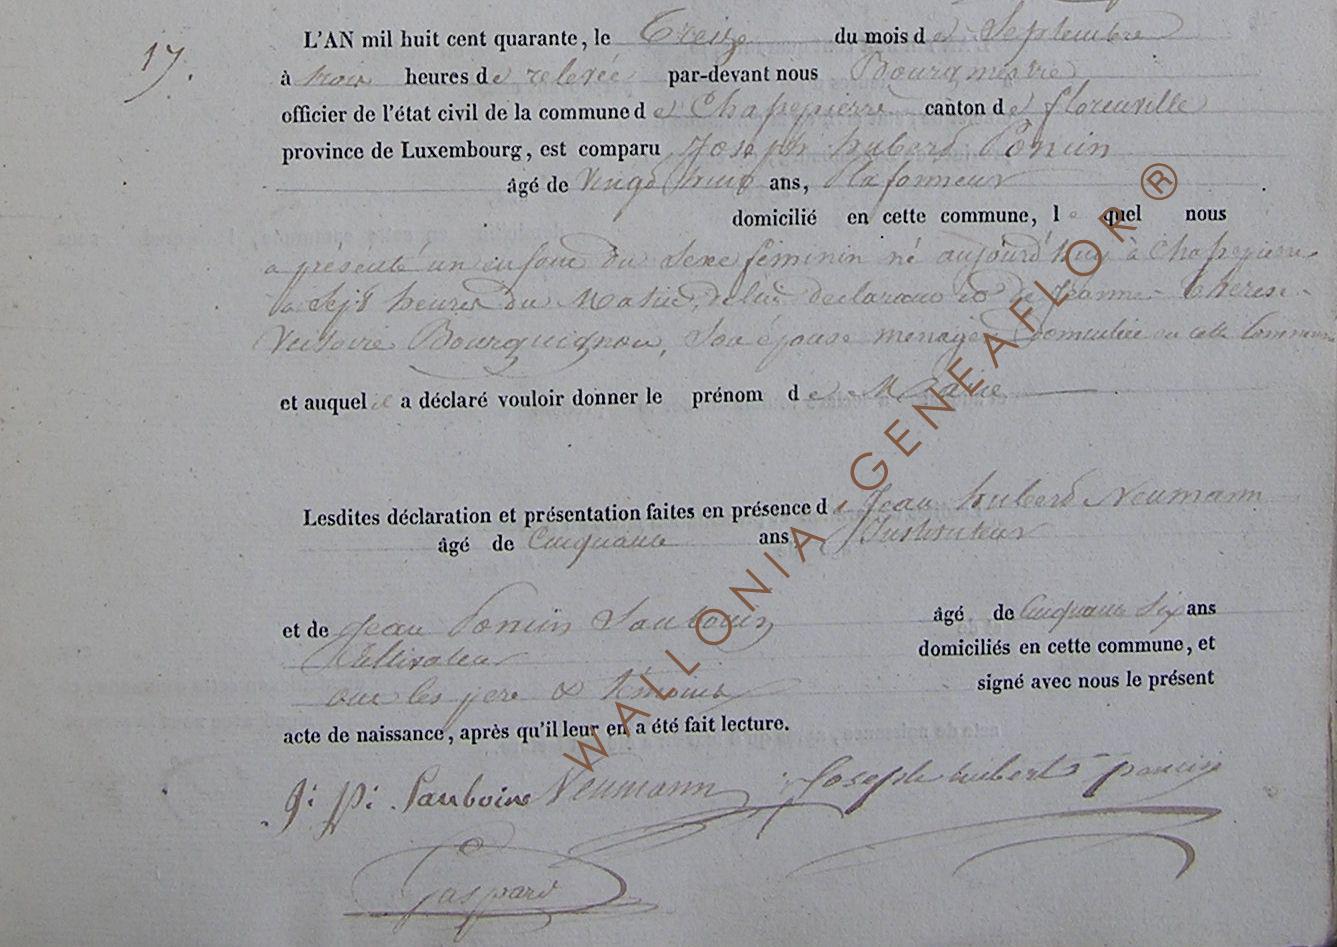 17.
L'AN mil huit cent quarante, le Treize du mois de Septembre
à trois heures de relevée par-devant nous Bourgmestre
officier de l'état civil de la commune de Chassepierre canton de florenville
province de Luxembourg, est comparu Joseph hubert Poncin
âgé de Vingt huit ans, Plafonneur
domicilié en cette commune, le quel nous
a présenté un enfant du Sexe féminin né aujourd'huy à Chassepierre
à Sept heures du Matin, de lui déclarant et de Jeanne Therese
Victoire Bourguignon, Son épouse menagère domiciliée en cette Commune
et auquel il a déclaré vouloir donner le prénom de Marie
Lesdites déclaration et présentation faites en présence de Jean hubert Neumann
âgé de Cinquante ans, Instituteur
et de Jean Poncin Sauboin âgé de Cinquante Six ans
Cultivateur domiciliés en cette commune, et
ont les père & témoins signé avec nous le présent
acte de naissance, après qu'il leur en a été fait lecture.
j: p: Sauboin Neumann Joseph hubert poncin
Gaspard
WALLONIA-GENEAFLOR ®